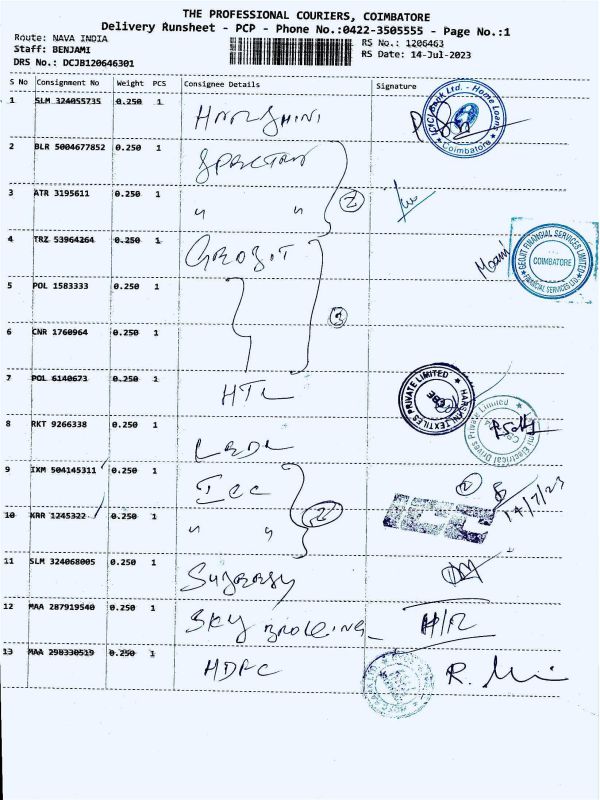 THE PROFESSIONAL COURIERS, COIMBATORE
Delivery Runsheet - PCP - Phone No.:0422-3505555 - Page No.:1
Route: NAVA INDIA
Staff: BENJAMI
DRS No.: DCJB120646301
RS No.: 1206463
RS Date: 14-Jul-2023
S No Consignment No Weight PCS Consignee Details Signature
1 SLM 324055735 0.250 1
ICICI Bank Ltd. - Home Loans
Coimbatore
2 BLR 5004677852 0.250 1
3 ATR 3195611 0.250 1 " " 2
4 TRZ 53964264 0.250 1 GEOJIT
GEOJIT FINANCIAL SERVICES LIMITED
COIMBATORE
5 POL 1583333 0.250 1
6 CNR 1760964 0.250 1 3
7 POL 6140673 0.250 1 HTL
PRIVATE LIMITED
TEXTILES PRIVATE LIMITED
CBE
8 RKT 9266338 0.250 1
Electrical Drives Private Limited
9 IXM 504145311 0.250 1 ICC 2
14/7/23
10 KRR 1245322 0.250 1 " " 2
11 SLM 324068005 0.250 1
12 MAA 287919540 0.250 1 SKY H/R
13 MAA 298330519 0.250 1 HDFC